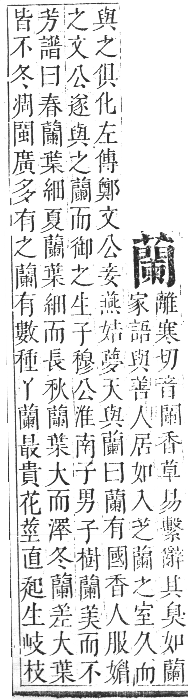 蘭
離寒切音闌香草易繫辭其臭如蘭
家語與善人居如入芝蘭之室久而
與之俱化左傳鄭文公妾燕姞夢天與蘭曰蘭有國香人服媚
之文公遂與之蘭而御之生子穆公淮南子男子樹蘭美而不
芳譜曰春蘭葉細夏蘭葉細而長秋蘭葉大而澤冬蘭差大葉
皆不冬凋閩廣多有之蘭有數種丫蘭最貴花莖直起生岐枝